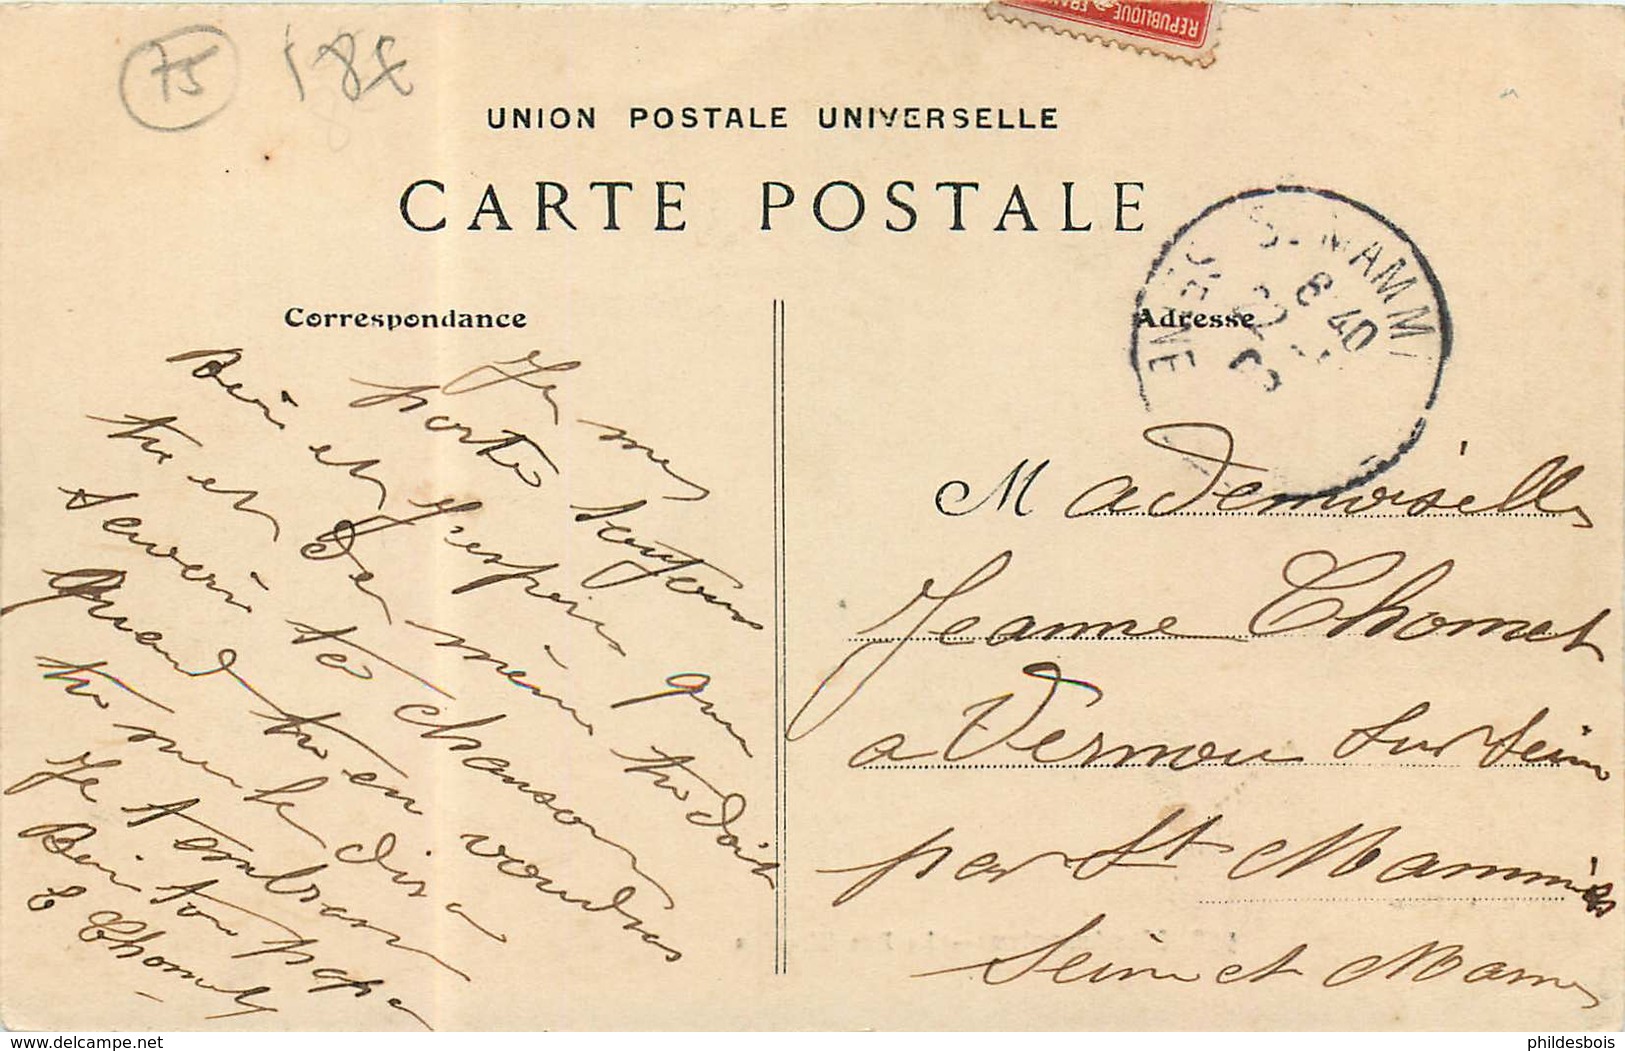 75
18E
REPUBLIQUE FRAN
UNION POSTALE UNIVERSELLE
CARTE POSTALE
Correspondance
Je me
porte toujours
Bien et j'espère que
tu et de même tu doit
savoir tes chanson
quand tu en voudras
tu me le dira
Je t'embrasse
Bien ton papa
E Chomet
Adresse
ST MAMM
6 40
SEINE
Mademoiselle
Jeanne Chomet
a Vernou sur Seine
par St Mammès
Seine et Marne
www.delcampe.net
phildesbois